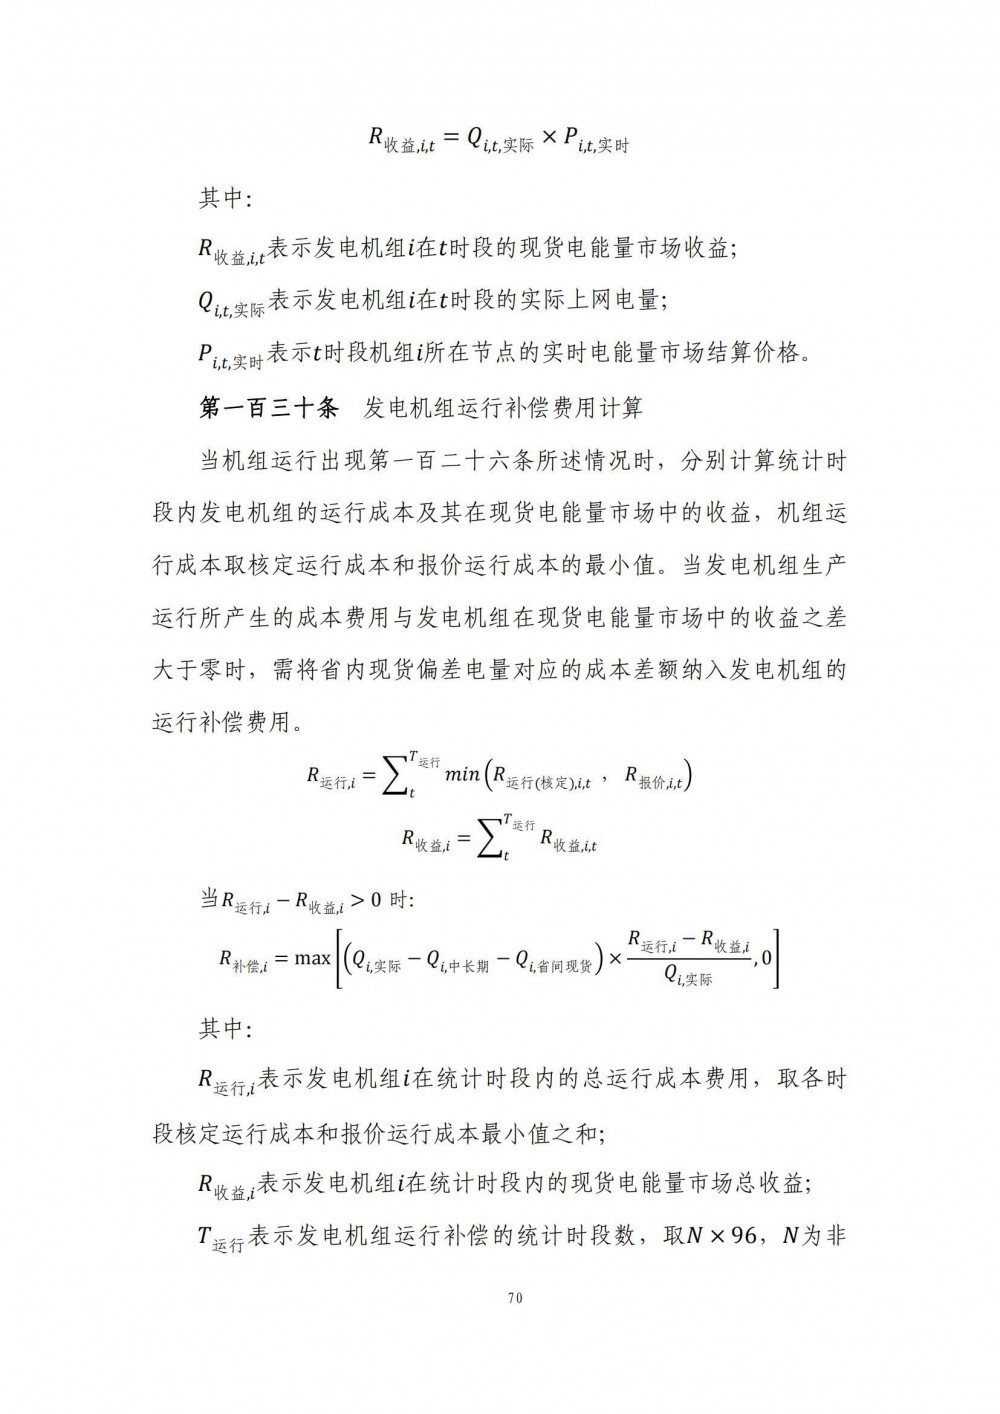 R收益,i,t = Qi,t,实际 × Pi,t,实时
其中:
R收益,i,t表示发电机组i在t时段的现货电能量市场收益;
Qi,t,实际表示发电机组i在t时段的实际上网电量;
Pi,t,实时表示t时段机组i所在节点的实时电能量市场结算价格。
第一百三十条 发电机组运行补偿费用计算
当机组运行出现第一百二十六条所述情况时，分别计算统计时
段内发电机组的运行成本及其在现货电能量市场中的收益，机组运
行成本取核定运行成本和报价运行成本的最小值。当发电机组生产
运行所产生的成本费用与发电机组在现货电能量市场中的收益之差
大于零时，需将省内现货偏差电量对应的成本差额纳入发电机组的
运行补偿费用。
R运行,i = ∑t^T运行 min(R运行(核定),i,t , R报价,i,t)
R收益,i = ∑t^T运行 R收益,i,t
当R运行,i − R收益,i > 0 时:
R补偿,i = max[(Qi,实际 − Qi,中长期 − Qi,省间现货) × (R运行,i − R收益,i)/Qi,实际 , 0]
其中:
R运行,i表示发电机组i在统计时段内的总运行成本费用，取各时
段核定运行成本和报价运行成本最小值之和;
R收益,i表示发电机组i在统计时段内的现货电能量市场总收益;
T运行表示发电机组运行补偿的统计时段数，取N × 96，N为非
70